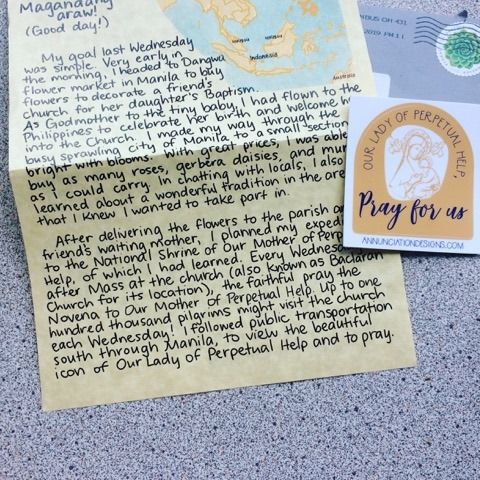 Magandang
araw!
(Good day!)
My goal last Wednesday
was simple. Very early in
the morning, I headed to Dangwa
flower market in Manila to buy
flowers to decorate a friend's
church for her daughter's Baptism.
As Godmother to the tiny baby, I had flown to the
Philippines to celebrate her birth and welcome her
into the Church. I made my way through the
busy sprawling city of Manila to a small section
bright with blooms. With great prices, I was able
buy as many roses, gerbera daisies, and mum
as I could carry. In chatting with locals, I also
learned about a wonderful tradition in the are
that I knew I wanted to take part in.
After delivering the flowers to the parish an
friend's waiting mother, I planned my exped
to the National Shrine of Our Mother of Perp
Help, of which I had learned. Every Wednesd
after Mass at the church (also known as Baclaran
Church for its location), the faithful pray the
Novena to Our Mother of Perpetual Help. Up to one
hundred thousand pilgrims might visit the church
each Wednesday! I followed public transportation
south through Manila, to view the beautiful
icon of Our Lady of Perpetual Help and to pray.
Indonesia
Australia
BUS OH 431
2019 PM 11
OUR LADY OF PERPETUAL HELP,
Pray for us
ANNUNCIATIONDESIGNS.COM